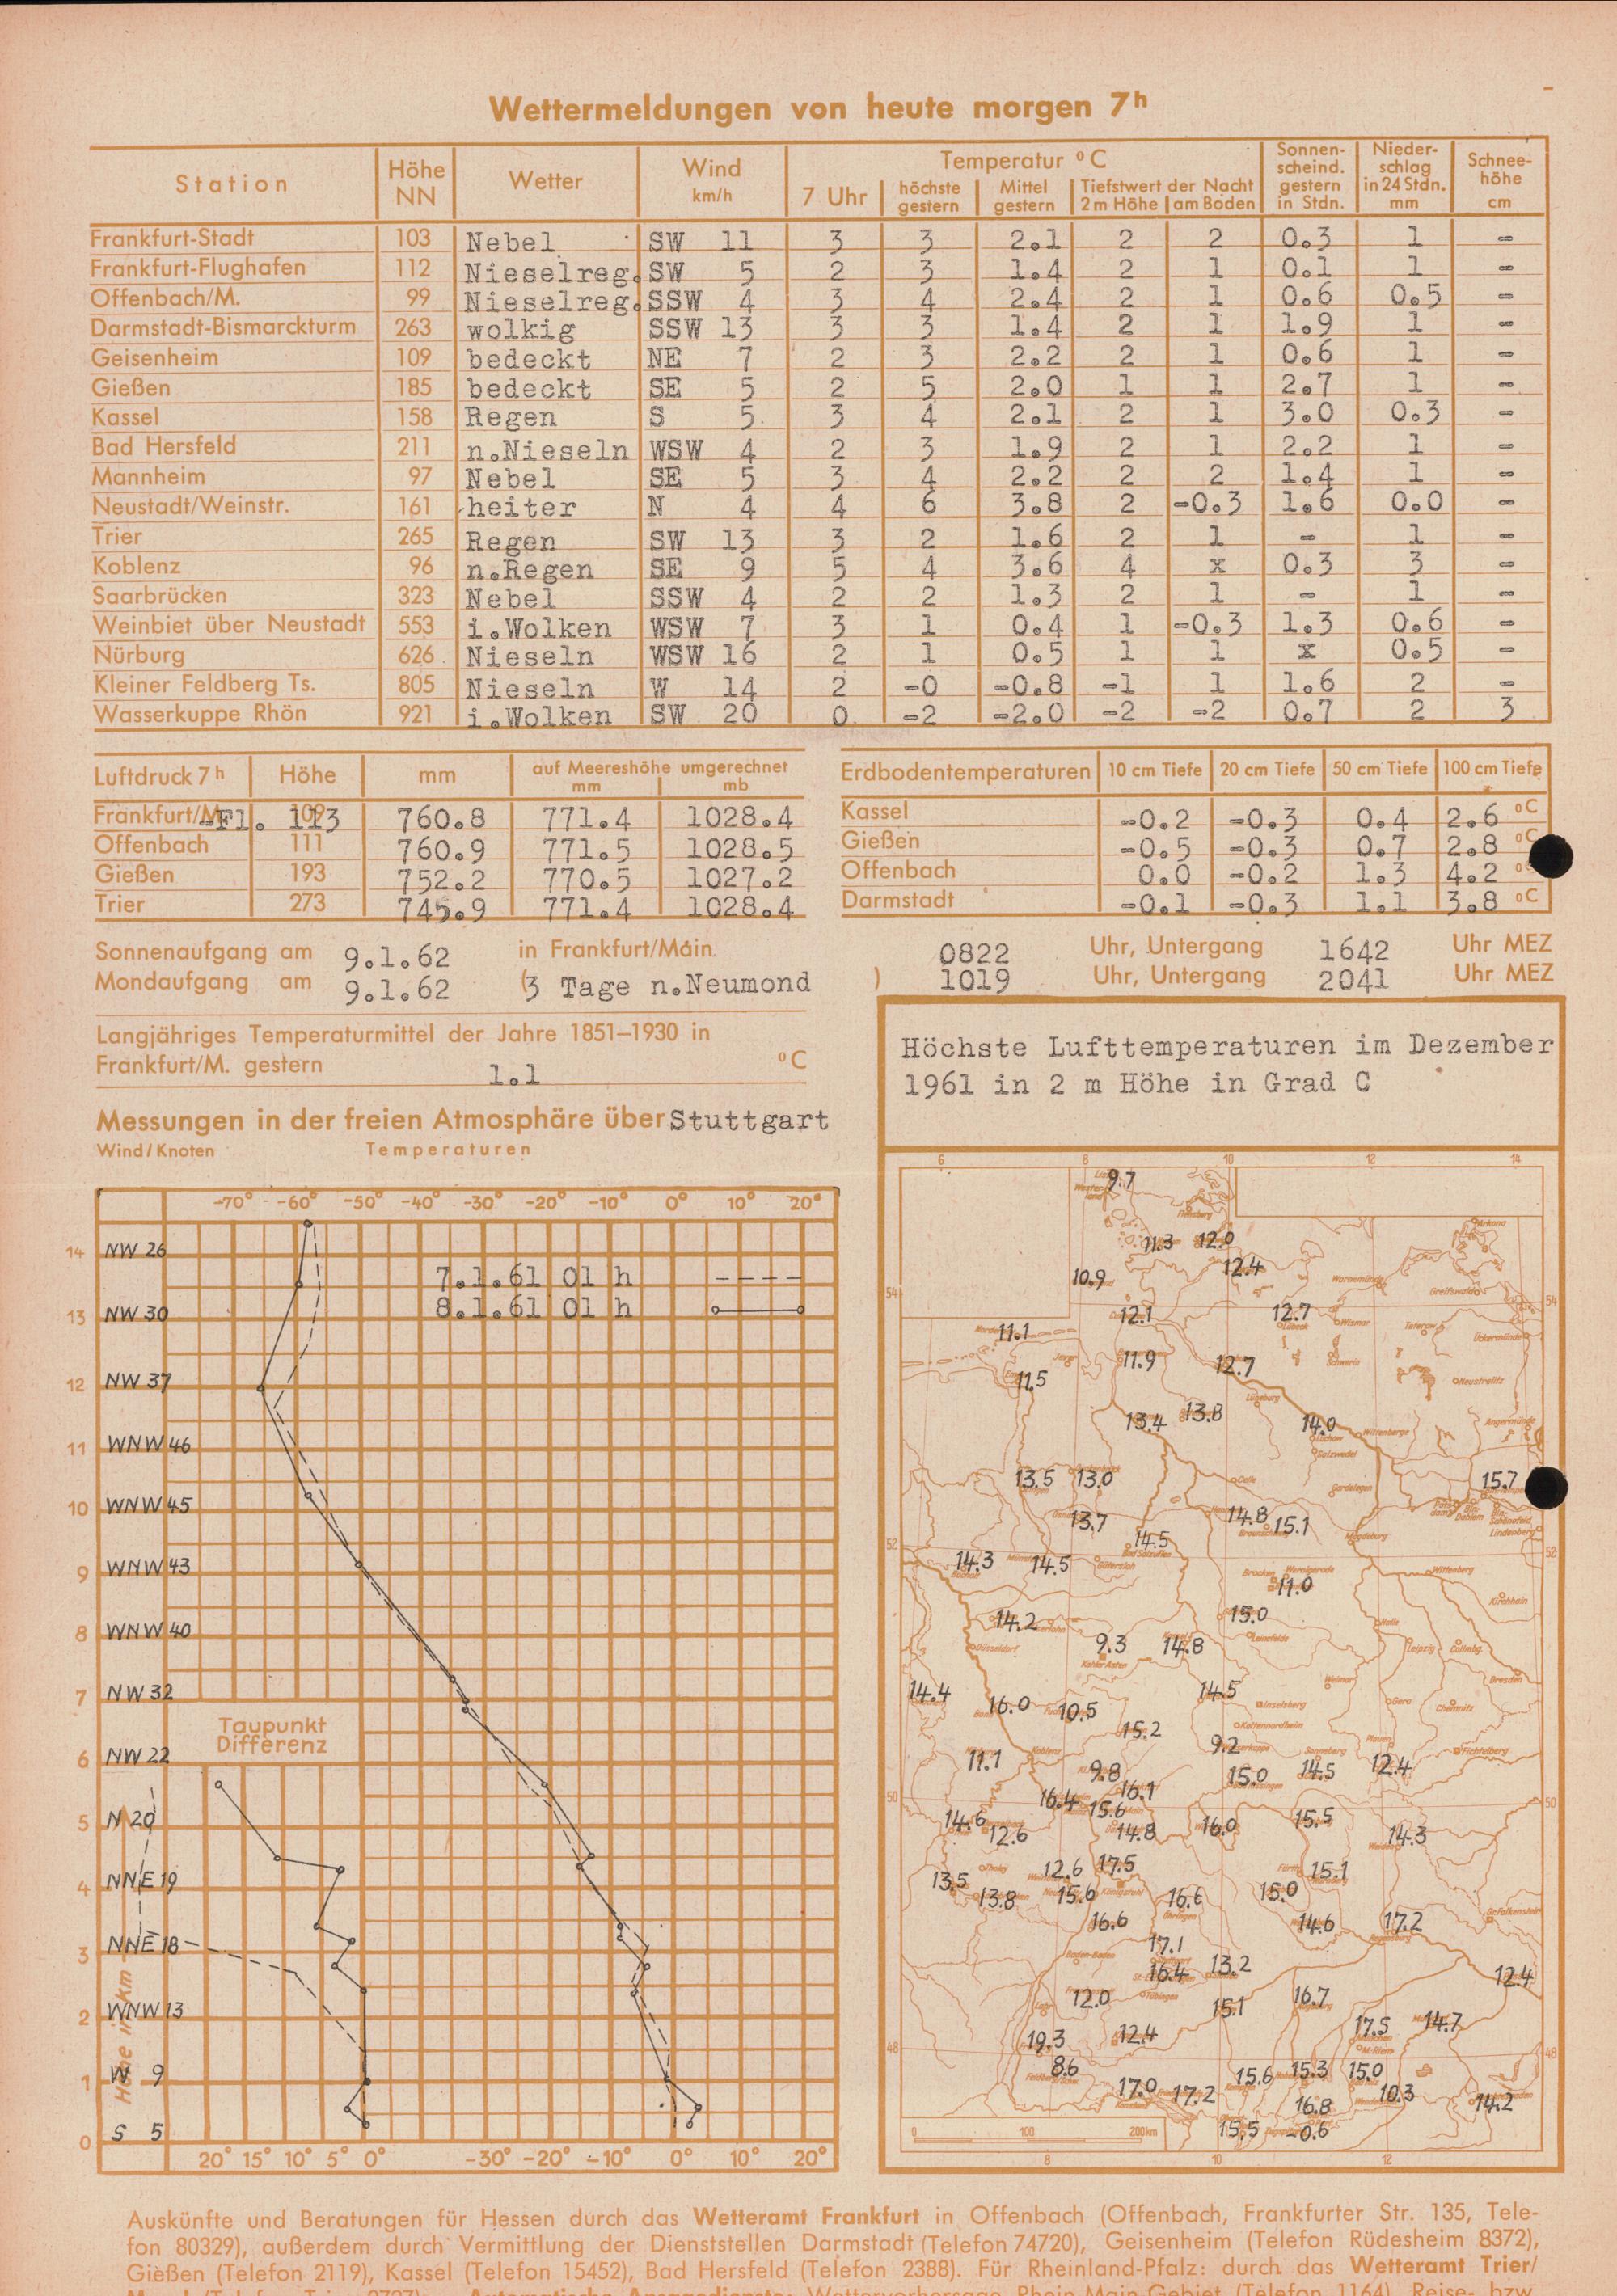 Wettermeldungen von heute morgen 7h
Station | Höhe NN | Wetter | Wind km/h | Temperatur °C | Sonnen-scheind. gestern in Stdn. | Nieder-schlag in 24 Stdn. mm | Schnee-höhe cm
7 Uhr | höchste gestern | Mittel gestern | Tiefstwert der Nacht 2 m Höhe | am Boden
Frankfurt-Stadt 103 Nebel SW 11 3 3 2.1 2 2 0.3 1 -
Frankfurt-Flughafen 112 Nieselreg. SW 5 2 3 1.4 2 1 0.1 1 -
Offenbach/M. 99 Nieselreg. SSW 4 3 4 2.4 2 1 0.6 0.5 -
Darmstadt-Bismarckturm 263 wolkig SSW 13 3 3 1.4 2 1 1.9 1 -
Geisenheim 109 bedeckt NE 7 2 3 2.2 2 1 0.6 1 -
Gießen 185 bedeckt SE 5 2 5 2.0 1 1 2.7 1 -
Kassel 158 Regen S 5 3 4 2.1 2 1 3.0 0.3 -
Bad Hersfeld 211 n.Nieseln WSW 4 2 3 1.9 2 1 2.2 1 -
Mannheim 97 Nebel SE 5 3 4 2.2 2 2 1.4 1 -
Neustadt/Weinstr. 161 heiter N 4 4 6 3.8 2 -0.3 1.6 0.0 -
Trier 265 Regen SW 13 3 2 1.6 2 1 - 1 -
Koblenz 96 n.Regen SE 9 5 4 3.6 4 x 0.3 3 -
Saarbrücken 323 Nebel SSW 4 2 2 1.3 2 1 - 1 -
Weinbiet über Neustadt 553 i.Wolken WSW 7 3 1 0.4 1 -0.3 1.3 0.6 -
Nürburg 626 Nieseln WSW 16 2 1 0.5 1 1 x 0.5 -
Kleiner Feldberg Ts. 805 Nieseln W 14 2 -0 -0.8 -1 1 1.6 2 -
Wasserkuppe Rhön 921 i.Wolken SW 20 0 -2 -2.0 -2 -2 0.7 2 3
Luftdruck 7h | Höhe | mm | auf Meereshöhe umgerechnet mm | mb
Frankfurt/M.-Fl. 113 760.8 771.4 1028.4
Offenbach 111 760.9 771.5 1028.5
Gießen 193 752.2 770.5 1027.2
Trier 273 745.9 771.4 1028.4
Erdbodentemperaturen | 10 cm Tiefe | 20 cm Tiefe | 50 cm Tiefe | 100 cm Tiefe
Kassel -0.2 -0.3 0.4 2.6 °C
Gießen -0.5 -0.3 0.7 2.8 °C
Offenbach 0.0 -0.2 1.3 4.2
Darmstadt -0.1 -0.3 1.1 3.8 °C
Sonnenaufgang am 9.1.62 in Frankfurt/Main 0822 Uhr, Untergang 1642 Uhr MEZ
Mondaufgang am 9.1.62 (3 Tage n.Neumond ) 1019 Uhr, Untergang 2041 Uhr MEZ
Langjähriges Temperaturmittel der Jahre 1851–1930 in
Frankfurt/M. gestern 1.1 °C
Messungen in der freien Atmosphäre über Stuttgart
Wind/Knoten Temperaturen
-70° -60° -50° -40° -30° -20° -10° 0° 10° 20°
7.1.61 01 h
8.1.61 01 h
14 NW 26
13 NW 30
12 NW 37
11 WNW 46
10 WNW 45
9 WNW 43
8 WNW 40
7 NW 32
Taupunkt
Differenz
6 NW 22
5 N 20
4 NNE 19
3 NNE 18
2 WNW 13
1 W 9
0 S 5
Höhe in km
20° 15° 10° 5° 0° -30° -20° -10° 0° 10° 20°
Höchste Lufttemperaturen im Dezember
1961 in 2 m Höhe in Grad C
6 8 10 12 14
9.7
11.3 12.0
10.9 12.4
54 54
12.1 12.7
11.1
11.9 12.7
11.5
13.4 13.8 14.0
13.5 13.0 15.7
13.7 14.8 15.1
14.5
52 52
14.3 14.5
11.0
14.2 15.0
9.3 14.8
14.4 16.0 10.5 14.5
15.2
11.1 9.2
9.8 15.0 14.5 12.4
16.4 16.1
50 50
14.6 15.6
12.6 14.8 16.0 15.5 14.3
13.5 12.6 17.5 15.1
13.8 15.6 16.6 15.0
16.6 14.6 17.2
17.1
16.4 13.2 12.4
12.0 15.1 16.7
19.3 12.4 17.5 14.7
48 48
8.6 15.6 15.3 15.0
17.0 17.2 16.8 10.3 14.2
15.5 -0.6
0 100 200km
8 10 12
Auskünfte und Beratungen für Hessen durch das Wetteramt Frankfurt in Offenbach (Offenbach, Frankfurter Str. 135, Tele-
fon 80329), außerdem durch Vermittlung der Dienststellen Darmstadt (Telefon 74720), Geisenheim (Telefon Rüdesheim 8372),
Gießen (Telefon 2119), Kassel (Telefon 15452), Bad Hersfeld (Telefon 2388). Für Rheinland-Pfalz: durch das Wetteramt Trier/